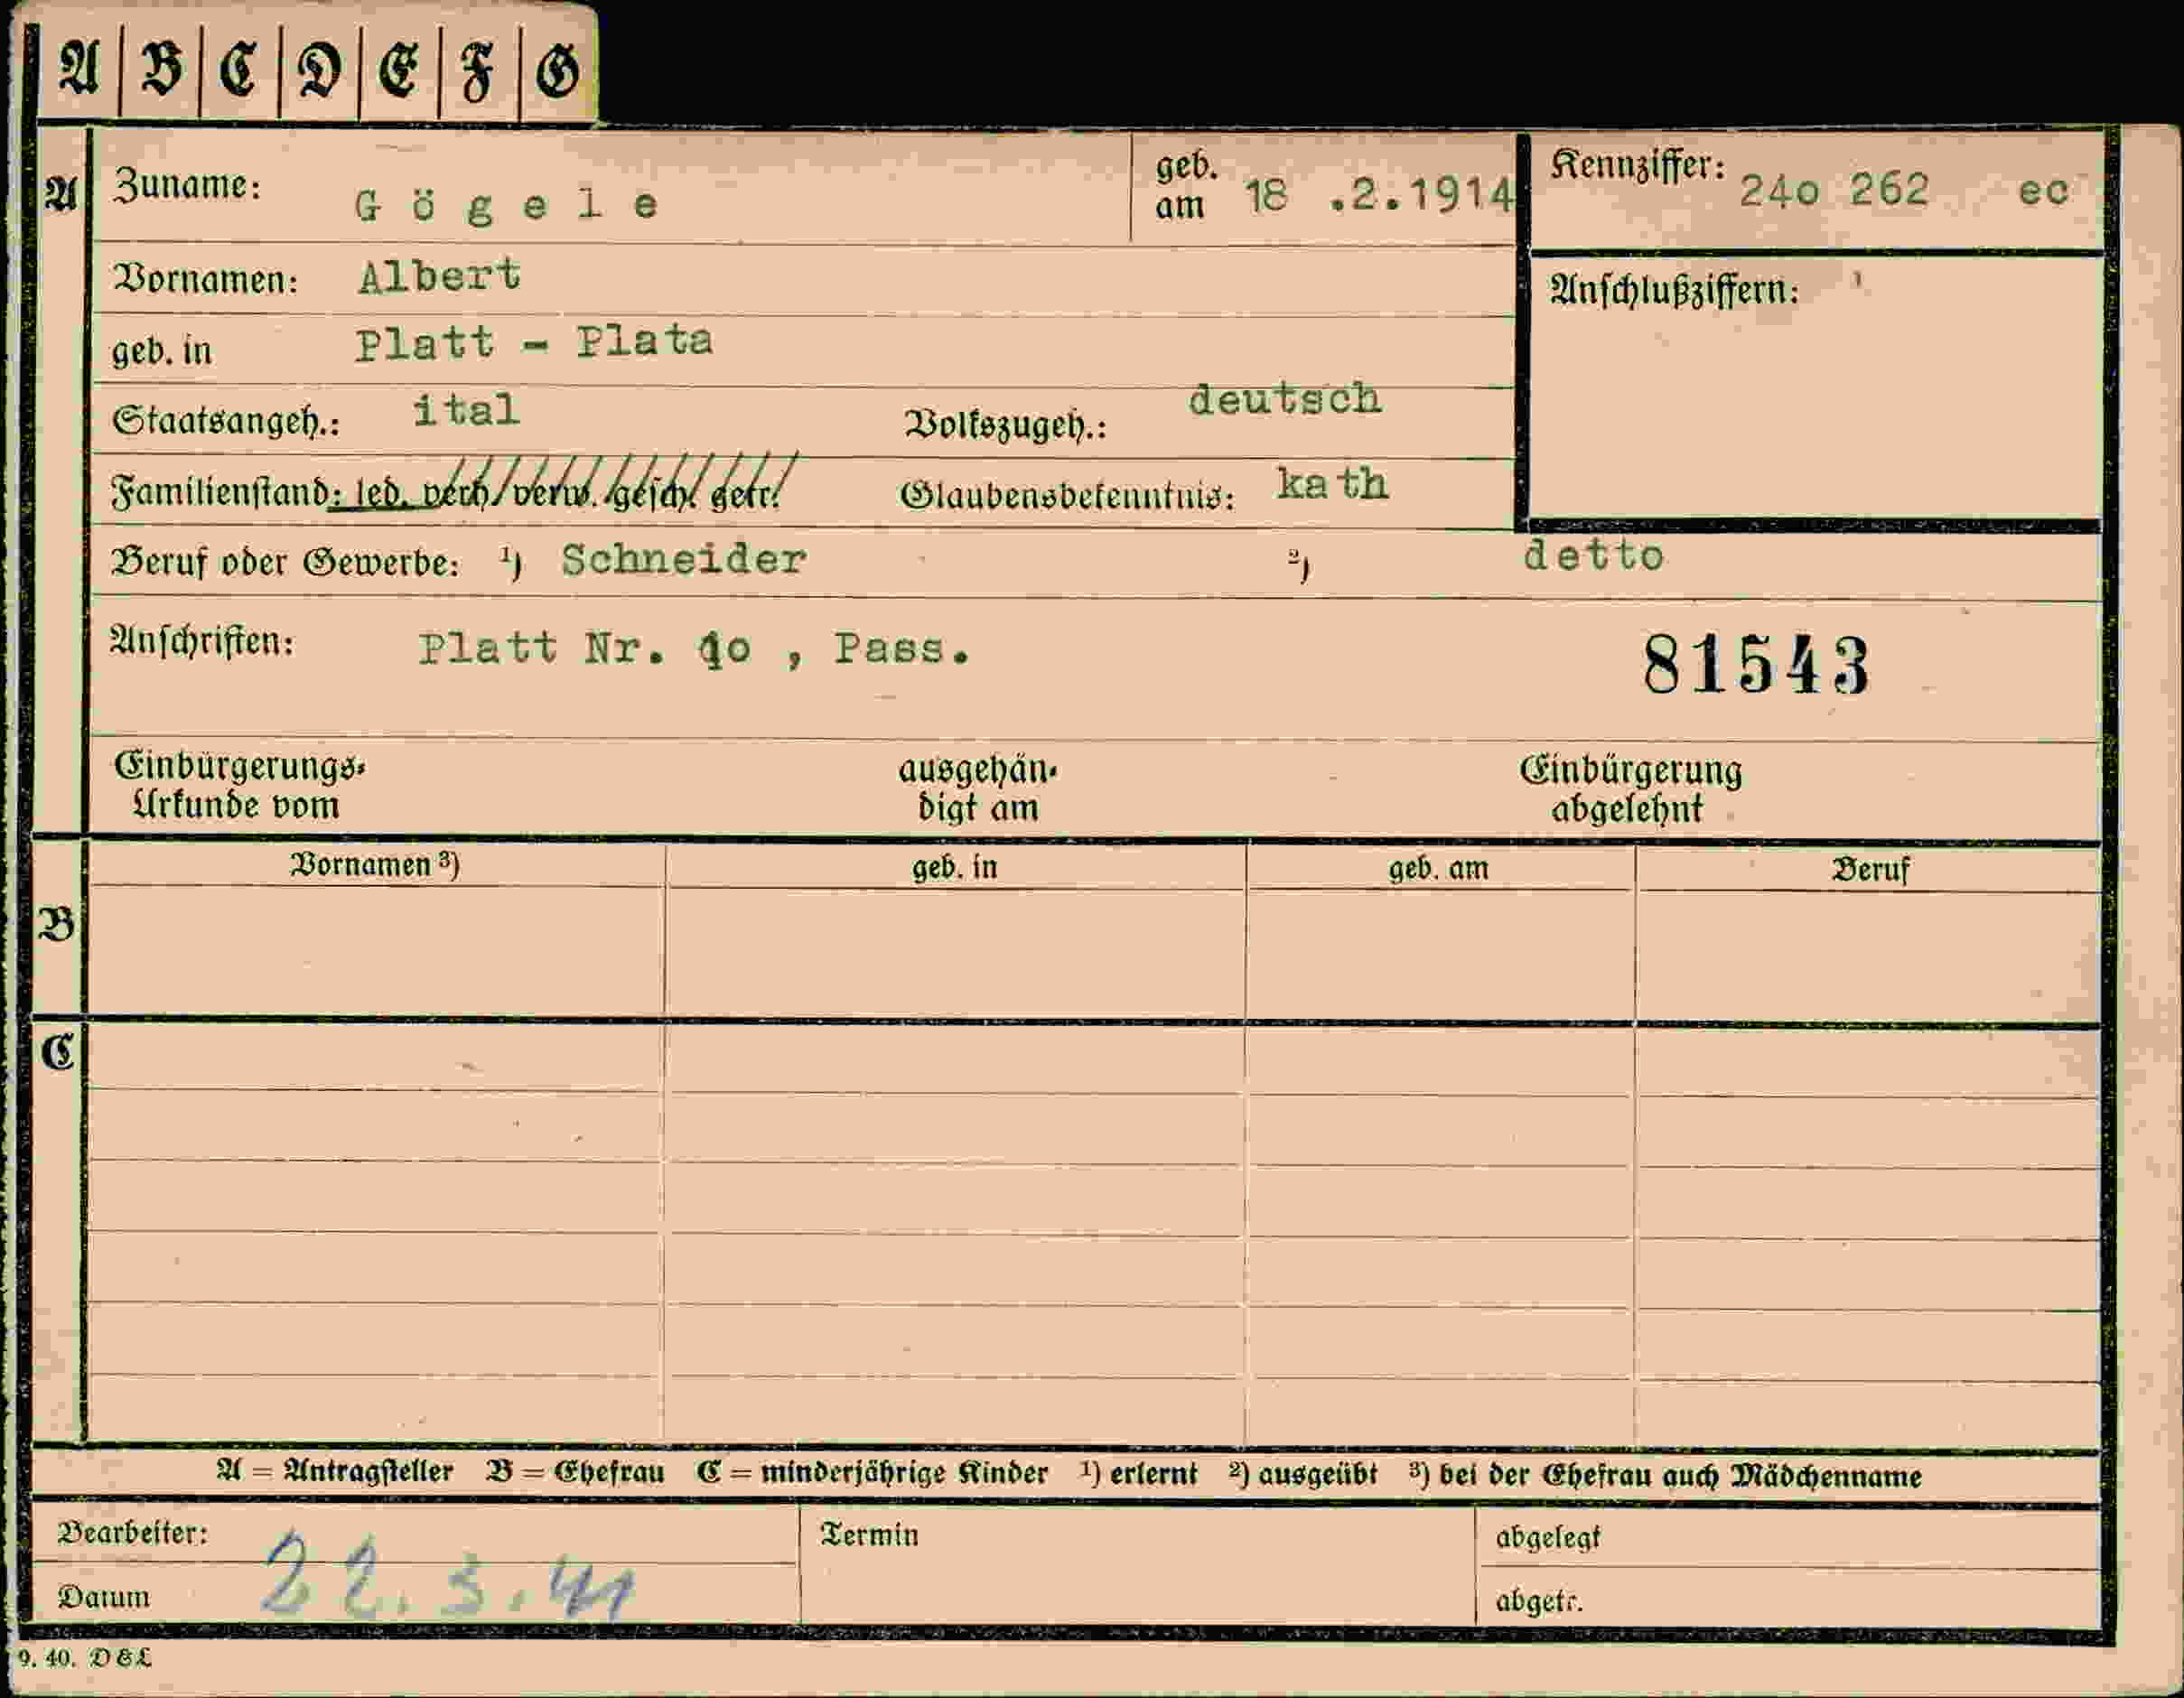 A B C D E F G
A Zuname: Gögele geb. am 18 .2.1914 Kennziffer: 24o 262 ec
Vornamen: Albert Anschlußziffern:
geb. in Platt - Plata
Staatsangeh.: ital Volkszugeh.: deutsch
Familienstand: led. verh. verw. gesch. getr. Glaubensbekenntnis: kath
Beruf oder Gewerbe: ¹) Schneider ²) detto
Anschriften: Platt Nr. 4o , Pass. 81543
Einbürgerungs- ausgehän- Einbürgerung
Urkunde vom digt am abgelehnt
Vornamen ³) geb. in geb. am Beruf
B
C
A = Antragsteller B = Ehefrau C = minderjährige Kinder ¹) erlernt ²) ausgeübt ³) bei der Ehefrau auch Mädchenname
Bearbeiter: Termin abgelegt
Datum 22.3.41 abgetr.
9. 40. D & L